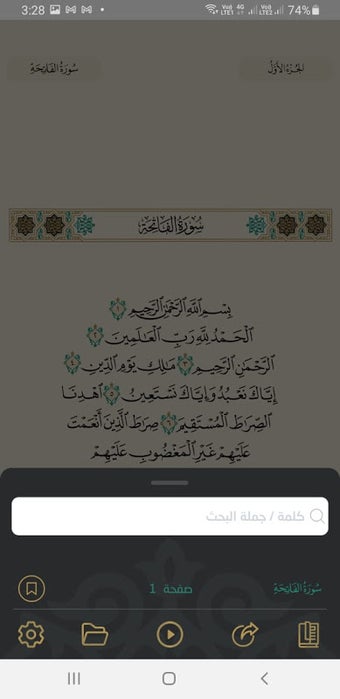 3:28
Vo) 4G LTE1 Vo) LTE2 74%
الجزء الأول
سورة الفاتحة
سورة الفاتحة
بِسْمِ اللَّهِ الرَّحْمَٰنِ الرَّحِيمِ ١
الْحَمْدُ لِلَّهِ رَبِّ الْعَالَمِينَ ٢
الرَّحْمَٰنِ الرَّحِيمِ ٣ مَالِكِ يَوْمِ الدِّينِ ٤
إِيَّاكَ نَعْبُدُ وَإِيَّاكَ نَسْتَعِينُ ٥ اهْدِنَا
الصِّرَاطَ الْمُسْتَقِيمَ ٦ صِرَاطَ الَّذِينَ أَنْعَمْتَ
عَلَيْهِمْ غَيْرِ الْمَغْضُوبِ عَلَيْهِمْ
كلمة / جملة البحث
سورة الفاتحة
صفحة 1